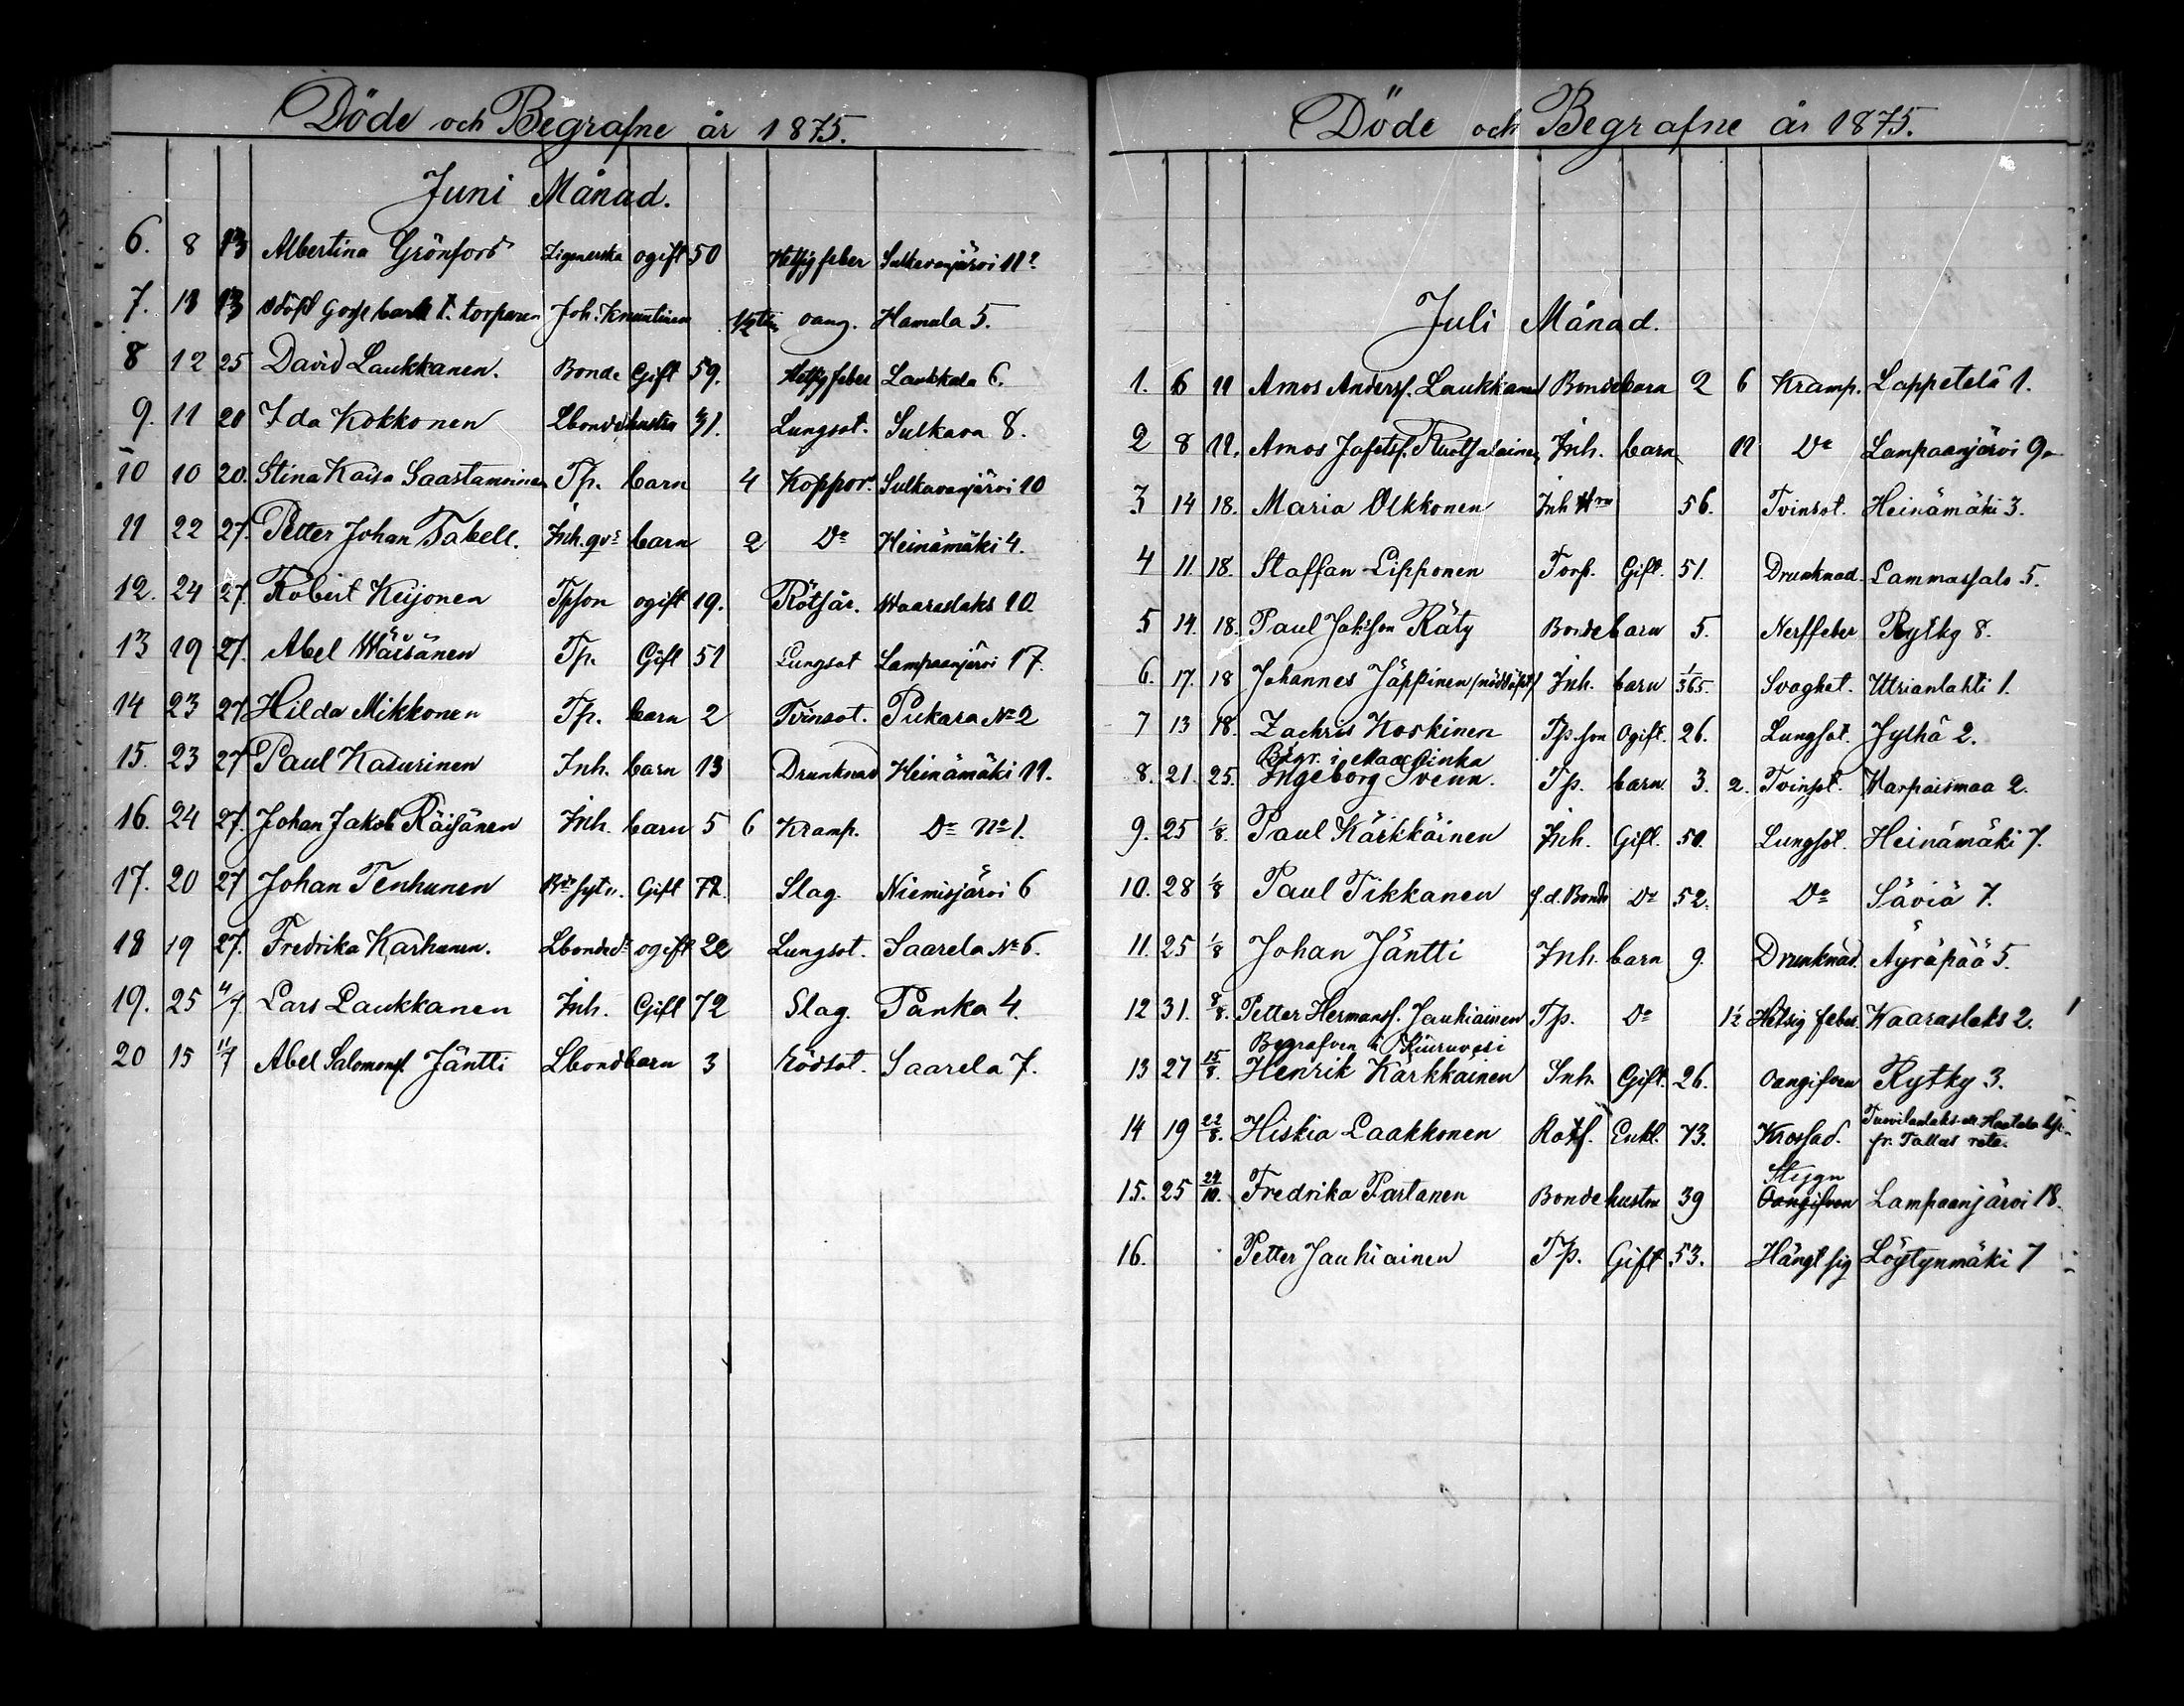 Döde och Begrafne år 1875.
Juni Månad.
6. 8 13 Albertina Grönfors Zigenerska ogift 50 Hetsig feber Sulkavanjärvi 11?
7. 13 13 odöpt Gosse barn t. torparen Joh. Knuutinen 1/2 tim oang. Hamula 5.
8 12 25 David Laukkanen. Bonde Gift 59. Hetsig feber Laukkala 6.
9. 11 20 Ida Kokkonen Lbonde hustru 31. Lungsot. Sulkava 8.
10 10 20. Stina Kaisa Saastamoinen Tp. barn 4 Koppor. Sulkavanjärvi 10
11 22 27. Petter Johan Tabell. Inh. qvs barn 2 Do Heinämäki 4.
12. 24 27. Robert Keijonen Tpson ogift 19. Rötfår. Waaraslaks 10
13 19 27. Abel Wäisänen Tp. Gift 51 Lungsot Lampaanjärvi 17.
14 23 27 Hilda Mikkonen Tp. barn 2 Tvinsot. Pukara No 2
15. 23 27 Paul Kasurinen Inh. barn 13 Drunknad Heinämäki 11.
16. 24 27. Johan Jakob Räisänen Inh. barn 5 6 Kramp. Do No 1.
17. 20 27 Johan Tenhunen Bde sytn. Gift 72. Slag. Niemisjärvi 6
18 19 27. Fredrika Karhunen. Lbonded. ogift 22 Lungsot. Saarela No 6.
19. 25 4/7 Lars Laukkanen Inh. Gift 72 Slag. Panka 4.
20 15 11/7 Abel Salomonsf. Jäntti Lbond barn 3 Rödsot. Saarela 7.
Döde och Begrafne år 1875.
Juli Månad.
1. 6 11 Amos Andersf. Laukkanen Bonde barn 2 6 Kramp. Lappetelä 1.
2 8 11. Amos Jafetsf. Ruotsalainen Inh. barn 11 Do Lampaanjärvi 9
3 14 18. Maria Olkkonen Inh. 56. Tvinsot. Heinämäki 3.
4 11. 18. Staffan Lipponen Torp. Gift. 51. Drunknad. Lammassalo 5.
5 14. 18. Paul JakSson Räty Bonde barn 5. Nerffeber Rytky 8.
6. 17. 18 Johannes Jäppinen (nöddöpt) Inh. barn 1/365. Svaghet. Utrianlahti 1.
7 13 18. Zachris Koskinen Tp. son Ogift. 26. Lungsot. Jylhä 2.
Begr. i Maaninka
8. 21. 25. Ingeborg Svenn. Tp. barn. 3. 2. Tvinsot. Karpaismaa 2.
9. 25 1/8. Paul Kärkkäinen Inh. Gift. 50. Lungsot. Heinämäki 7.
10. 28 1/8 Paul Tikkanen f.d. Bonde Do 52. Do Säviä 7.
11. 25 1/8 Johan Jäntti Inh. barn 9. Drunknad. Äyräpää 5.
12 31. 8/8. Petter Hermansf. Jauhiainen Tp. Do 1 1/2 Hetsig feber. Kaaraslaks 2.
Begrafven i Kiuruvesi
13 27 15/8. Henrik Kärkkäinen Inh. Gift. 26. Oangifven Rytky 3.
14 19 22/8. Hiskia Laakkonen Rotf. Enkl. 73. Krossad. fr. Tallus rote.
15. 25 24/10. Fredrika Partanen Bonde hustru 39 Oangifven Stygn Lampaanjärvi 18.
16. Petter Jauhiainen Tp. Gift 53. Hängt sig Löytynmäki 7